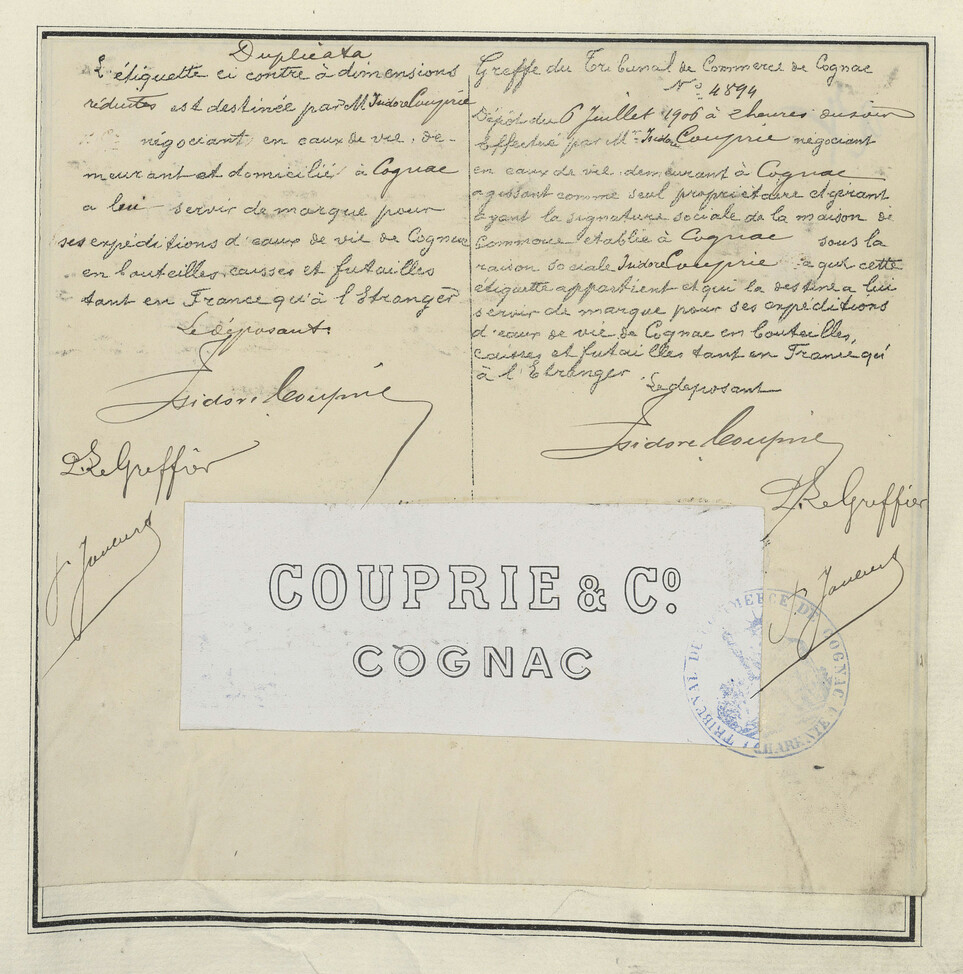 Duplicata
L'étiquette ci contre à dimensions
réduites est destinée par M. Isidore Couprie
négociant en eaux de vie, de-
meurant et domicilié à Cognac
a lui servir de marque pour
ses expéditions d'eaux de vie de Cognac
en bouteilles, caisses et futailles
tant en France qu'à l'Etranger
Le déposant
Isidore Couprie
P. Le Greffier
Greffe du Tribunal de Commerce de Cognac
No 4894
Dépot du 6 Juillet 1906 à 2 heures du soir
Effectué par Mr Isidore Couprie négociant
en eaux de vie, demeurant à Cognac
agissant comme seul propriétaire et gérant
ayant la signature sociale de la maison de
Commerce etablie à Cognac sous la
raison sociale Isidore Couprie a qui cette
étiquette appartient et qui la destine a lui
servir de marque pour ses expéditions
d'eaux de vie de Cognac en bouteilles,
caisses et futailles tant en France qu'
à l'Etranger
Le déposant
Isidore Couprie
P. Le Greffier
COUPRIE & Co.
COGNAC
TRIBUNAL DE COMMERCE DE COGNAC
CHARENTE